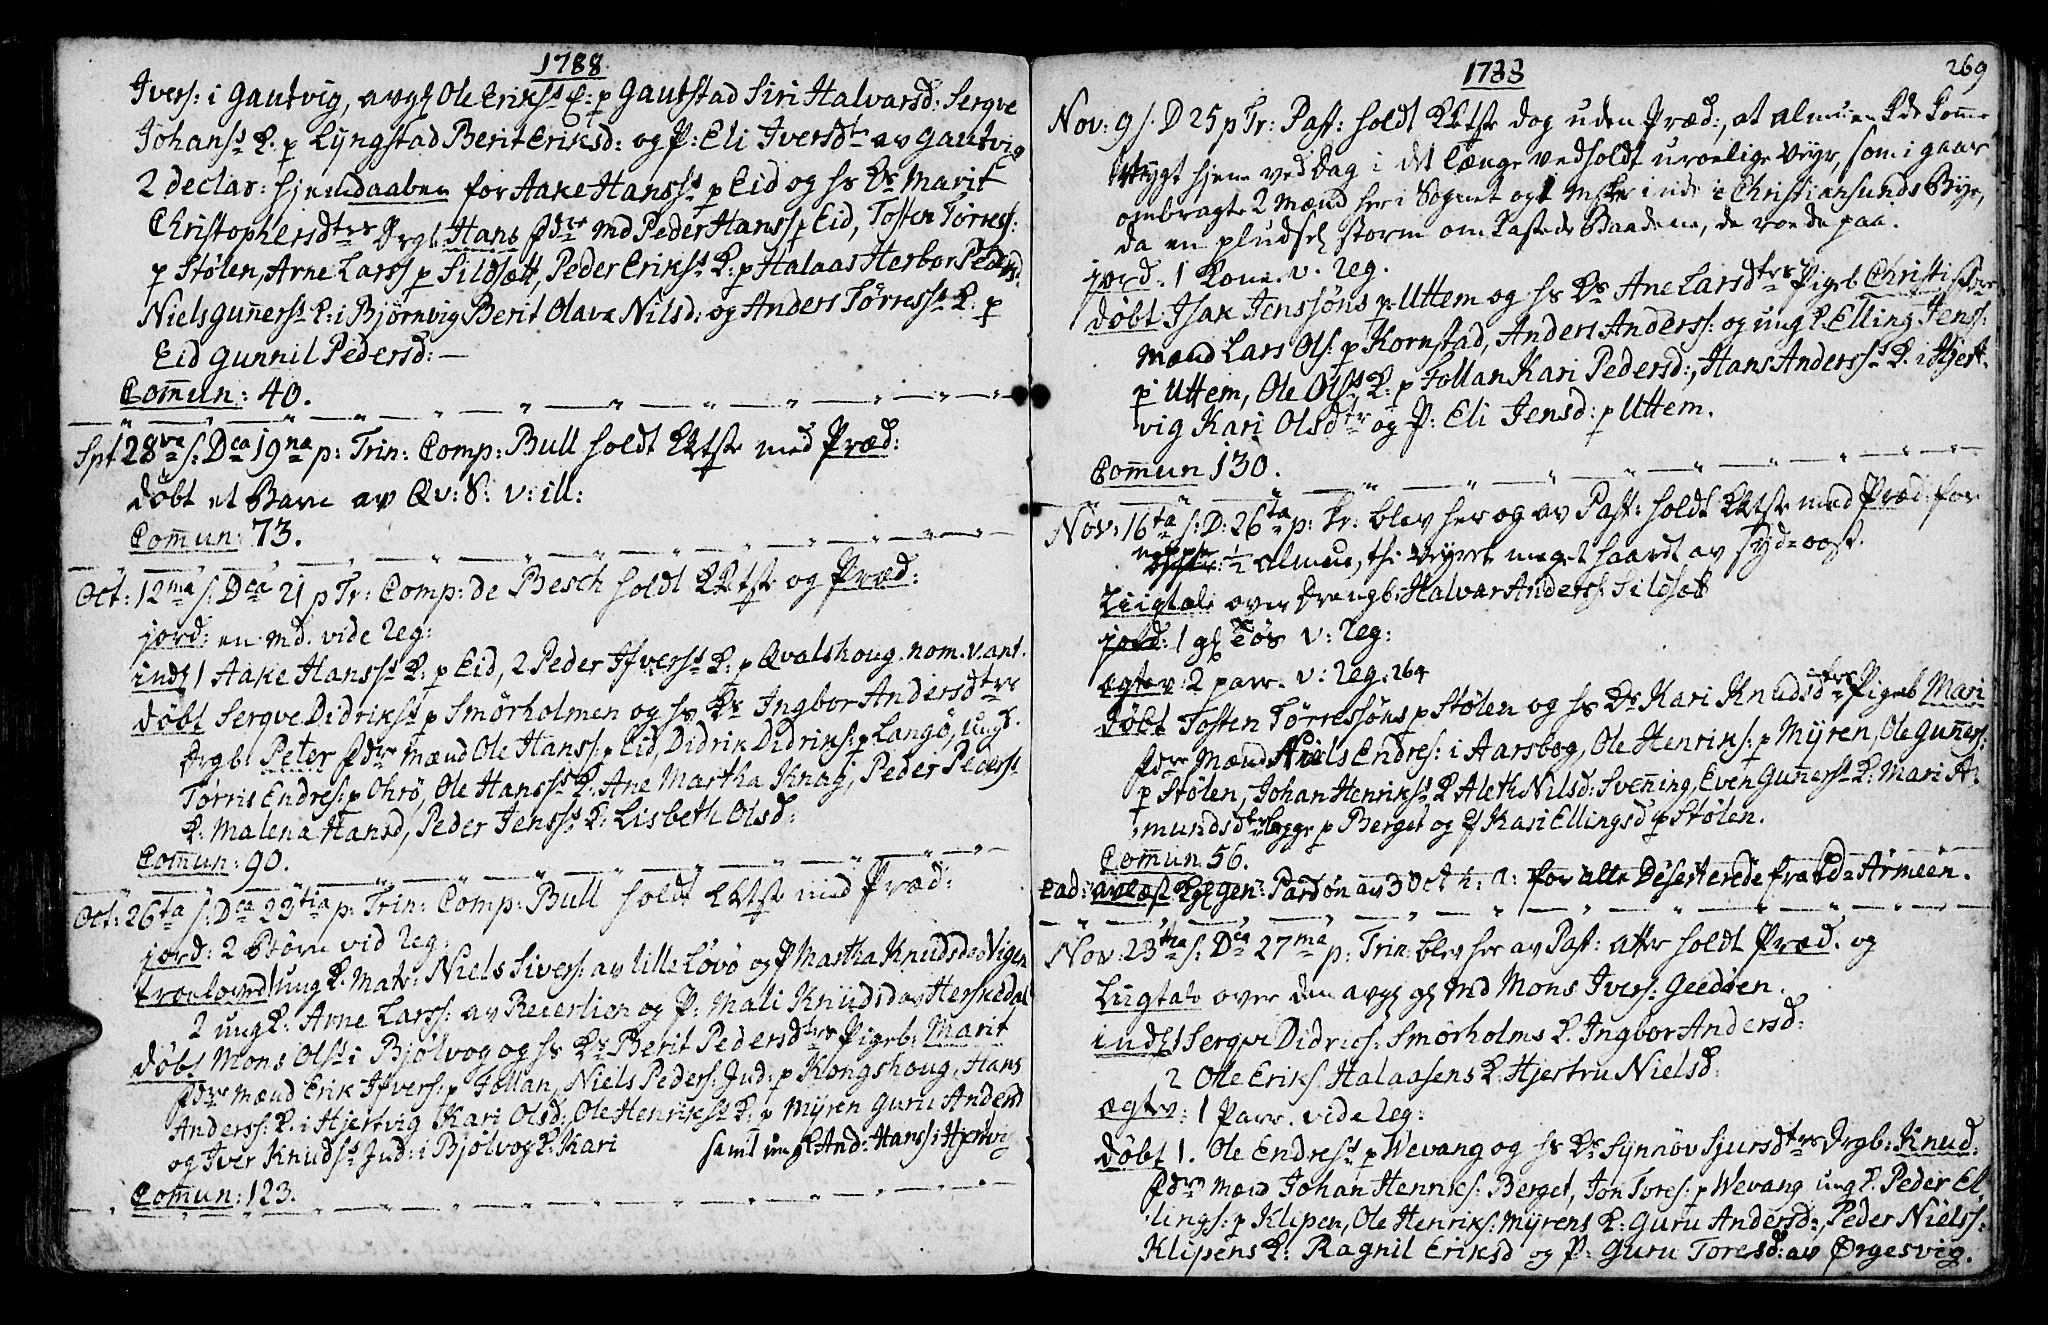 1788
Ivers: i Gautvig, avgl Ole Erikss E: p Gautstad Siri Halvarsd: Serqve
Johanss K: p Lyngstad Berit Eriksd: og P: Eli Iversdtr av Gautvig
2 declar: hjemdaaben for Aake Hanss p Eid og hs Ks Marit
Christophersdtrs Drgb: Hans fdre md Peder Hanss p Eid, Tosten Tørress:
p Stølen, Arne Larss p Sildsætt, Peder Erikss K: p Halaas Herbor Pedersd:
Niels Gunnerss K: i Bjørnvig Berit Olava Nilsd: og Anders Tørress K: p
Eid Gunnil Pedersd:
Comun: 40.
Spt 28va s: Dca 19na p: Trin: Comp: Bull holdt Kktste med Præd:
døbt et Barn av Qv: S: v: ill:
Comun: 73.
Oct: 12ma s: Dca 21 p Tr: Comp: de Besch holdt Kktste og Præd:
jord: en md. vide Reg:
indl 1 Aake Hanss K: p Eid, 2 Peder Ifverss K: p Qvalshoug. nom. v. ant.
døbt Serqve Didrikss p Smørholmen og hs Ks Ingbor Andersdtrs
Drgb: Peter fdre Mænd Ole Hanss: p Eid, Didrik Didriks: p Langø, ungd.
Torris Endres: p Ohrø, Ole Hanss K: Ane Martha Knag, Peder Pederss
K: Malena Hansd, Peder Jenss K: Lisbeth Olsd:
Comun: 90.
Oct: 26ta s: Dca 23tia p: Trin: Comp: Bull holdt Kktste med Præd:
jord: 2 Børn vid Reg:
troeloved 1 ung K: Mats: Niels Sivers: av lille Løvø og P Martha Knudsda Vigen
2 ung K: Arne Larss: av Reierlien og P: Mali Knudsda Herskedal
døbt Mons Olss i Bjølvog og hs Ks Berit Pedersdtrs Pigeb: Marit
fdre Mænd Erik Ifvers: p Follan, Niels Peders: Jud: p Kongshoug, Hans
Anderss: K: i Hjertvig Kari Olsd: Ole Henrikss K: p Myren Guru Andersd
og Iver Knudss Jud: i Bjølvog K: Kari samt ung K And: Hanss i Hjertvig
Comun: 123.
1788
269
Nov: 9 s. D 25 p Tr: Past: holdt Kktste dog uden Præd:, at almuen kde komme
trygt hjem ved Dag i det længe vedholdt uroelige Veyr, som i gaar
ombragte 2 Mænd her i Sognet og 1 Mske inde i Christiansunds Bye,
da en pludsel storm omkastede Baadene, de roede paa.
jord: 1 Kone. v. Reg.
døbt Isak Jenssøns p Uttem og hs Ks Ane Larsdtrs Pigeb Christi fdre
Mænd Lars Ols: p Kornstad, Anders Anderss: og ung K. Elling Jens:
p Uttem, Ole Olss K: p Follan Kari Pedersd:, Hans Anderss K: i Hjert-
vig Kari Olsdtr og P: Eli Jensd: p Uttem.
Comun 130.
Nov: 16ta s: D: 26ta p: Tr: blev her og av Past: holdt Kktste med Præd: for
neppe 1/2 Almue, thi Veyret meget haardt av Syd=oost.
Liigtale over Drengb: Halvar Anders: Sildsæt
jord: 1 gl Tøs v: Reg:
ægtev: 2 parr. v: Reg: 264
døbt Tosten Tørressøns p Stølen og hs Ks Kari Knudsdtrs Pigeb Mari
fdre Mænd Niels Endres: i Aarsbog, Ole Henriks: p Myren, Ole Guners:
p Stølen, Johan Henrikss K Aleth Nilsd: Svenning, Even Gunerss K: Mari A-
mundsdtr Legge p Berget og P Kari Ellingsd p Stølen.
Comun 56.
Ead: avlæst Kgl Gen: Pardon av 3 Oct h: a: for alle Deserterede fra Ld= Armeen.
Nov: 23tia s: Dca 27ma p: Trin: blev her av Past: atter holdt Præd. og
Liigtale over den avgl gl Md Mons Ivers: Geedøen.
indl 1 Serqve Didrics: Smørholms K. Ingbor Andersd:
2 Ole Eriks: Halaasens K: Hjertru Nielsd:
ægtev: 1 Parr. vide Reg:
døbt 1. Ole Endress p Wevang og hs Ks Synnøv Sjursdtrs Drgb: Knud:
fdre Mænd Johan Henriks: Berget, Jon Tores: p Wevang ung K. Peder El-
lings: p Klipen, Ole Henriks: Myrens K: Guru Andersd:, Peder Nielss:
Klipens K: Ragnil Eriksd og P: Guru Toresd: av Ørgesvig.